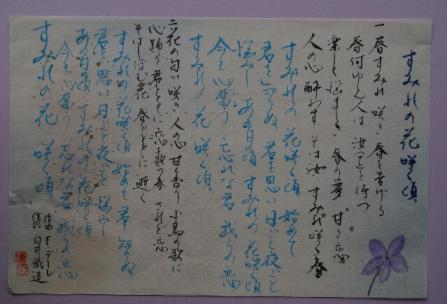 すみれの花咲く頃
一、春すみれ咲き 春を告げる
春何ゆえ人は 汝(なれ)を待つ
楽しく悩ましき 春の夢 甘き恋
人の心酔わす そは汝 すみれ咲く春
すみれの花咲く頃 始めて
君を知りぬ 君を思い 日ごと夜ごと
悩みし あの日の頃 すみれの花咲く頃
今も心奮う 忘れな君 我らの恋
すみれの花 咲く頃
二、花の匂い咲き 人の心甘く香り 小鳥の歌に
心踊り 君とともに 恋を歌う春 されど恋
そはしぼむ花 春とともに逝く
すみれの花咲く頃 始めて君を知りぬ
君を思い 日ごと夜ごと 悩みし
あの日の頃 すみれの花咲く頃
今も心奮う 忘れな君 我らの恋
すみれの花 咲く頃
作曲 F・デーレ
作詞 白井鉄造